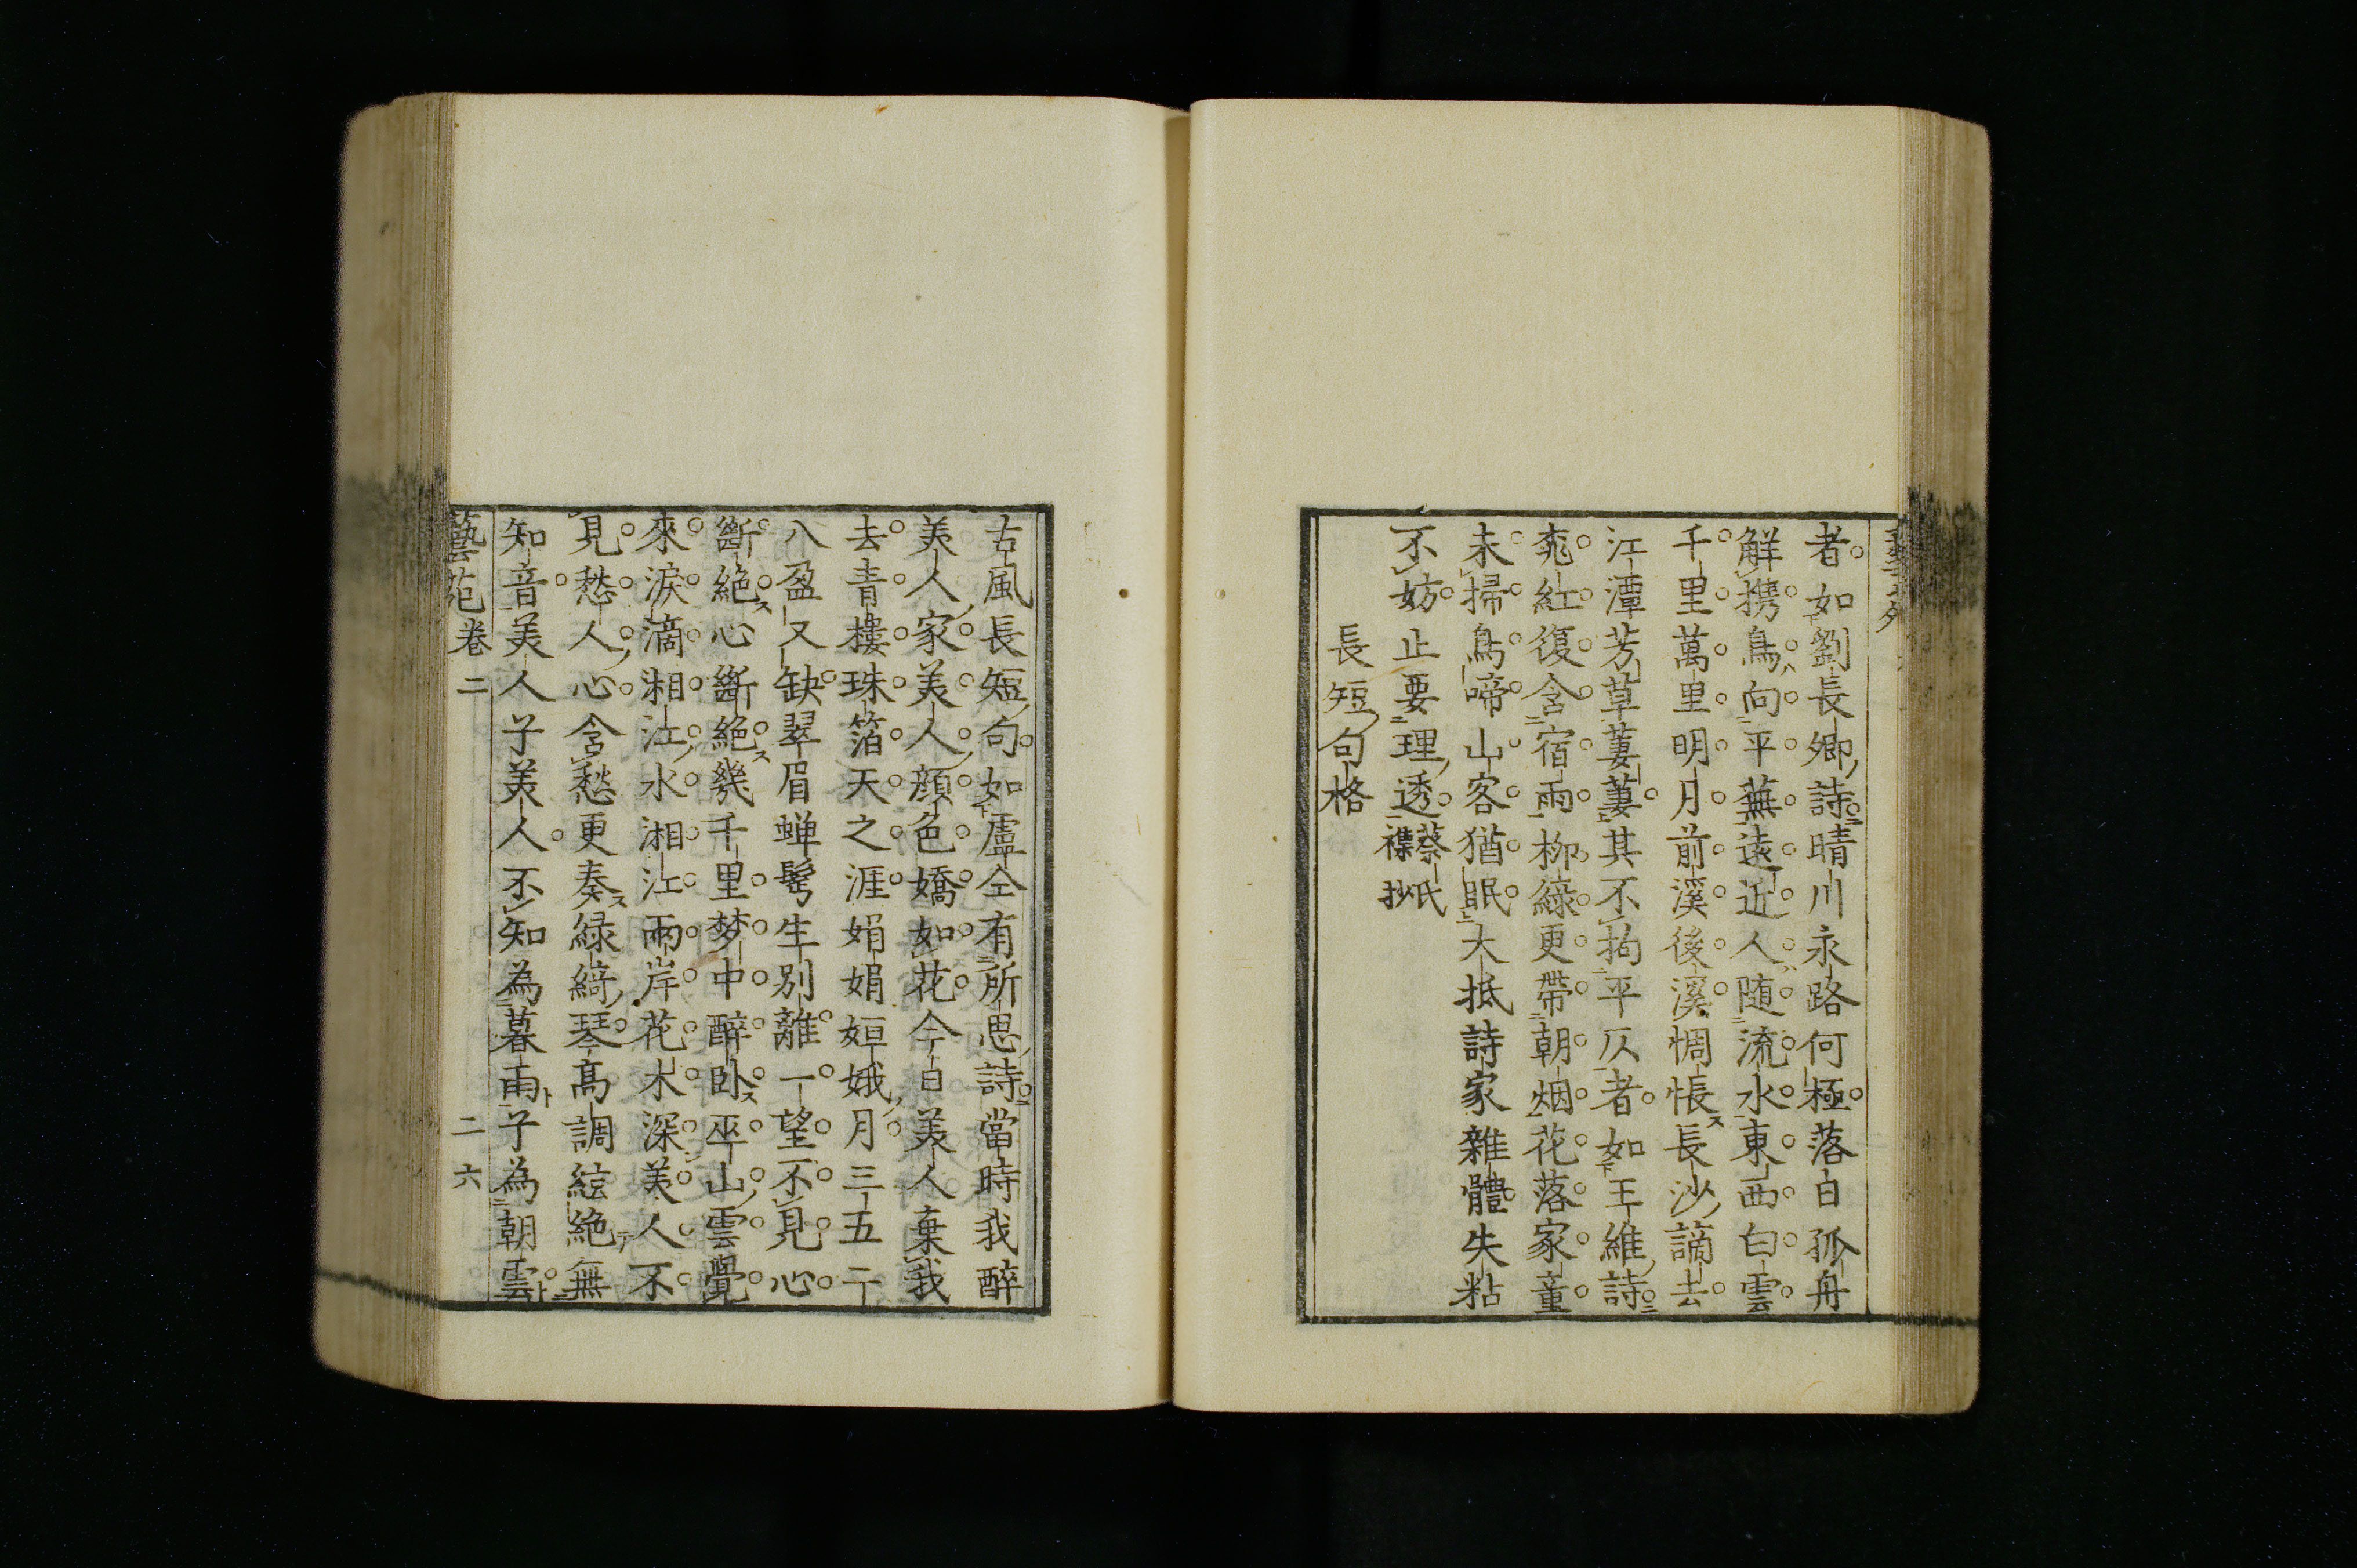 者如劉長卿詩晴川永路何極落日孤舟
解携鳥向平蕪遠近人随流水東西白雲
千里萬里明月前溪後溪惆悵長沙謫去
江潭芳草萋萋其不拘平仄者如王維詩
桃紅復含宿雨柳綠更帶朝烟花落家童
未掃鳥啼山客猶眠大抵詩家雜體失粘
不妨止要理透蔡氏襍抄
長短句格
古風長短句如盧仝有所思詩當時我醉
美人家美人顔色嬌如花今日美人棄我
去青樓珠箔天之涯娟娟姮娥月三五二
八盈又缺翠眉蝉髩生别離一望不見心
斷絶心斷絶幾千里梦中醉卧巫山雲覺
來淚滴湘江水湘江兩岸花木深美人不
見愁人心含愁更奏緑綺琴髙調絃絶無
知音美人子美人不知為暮雨子為朝雲
藝苑卷二 二六